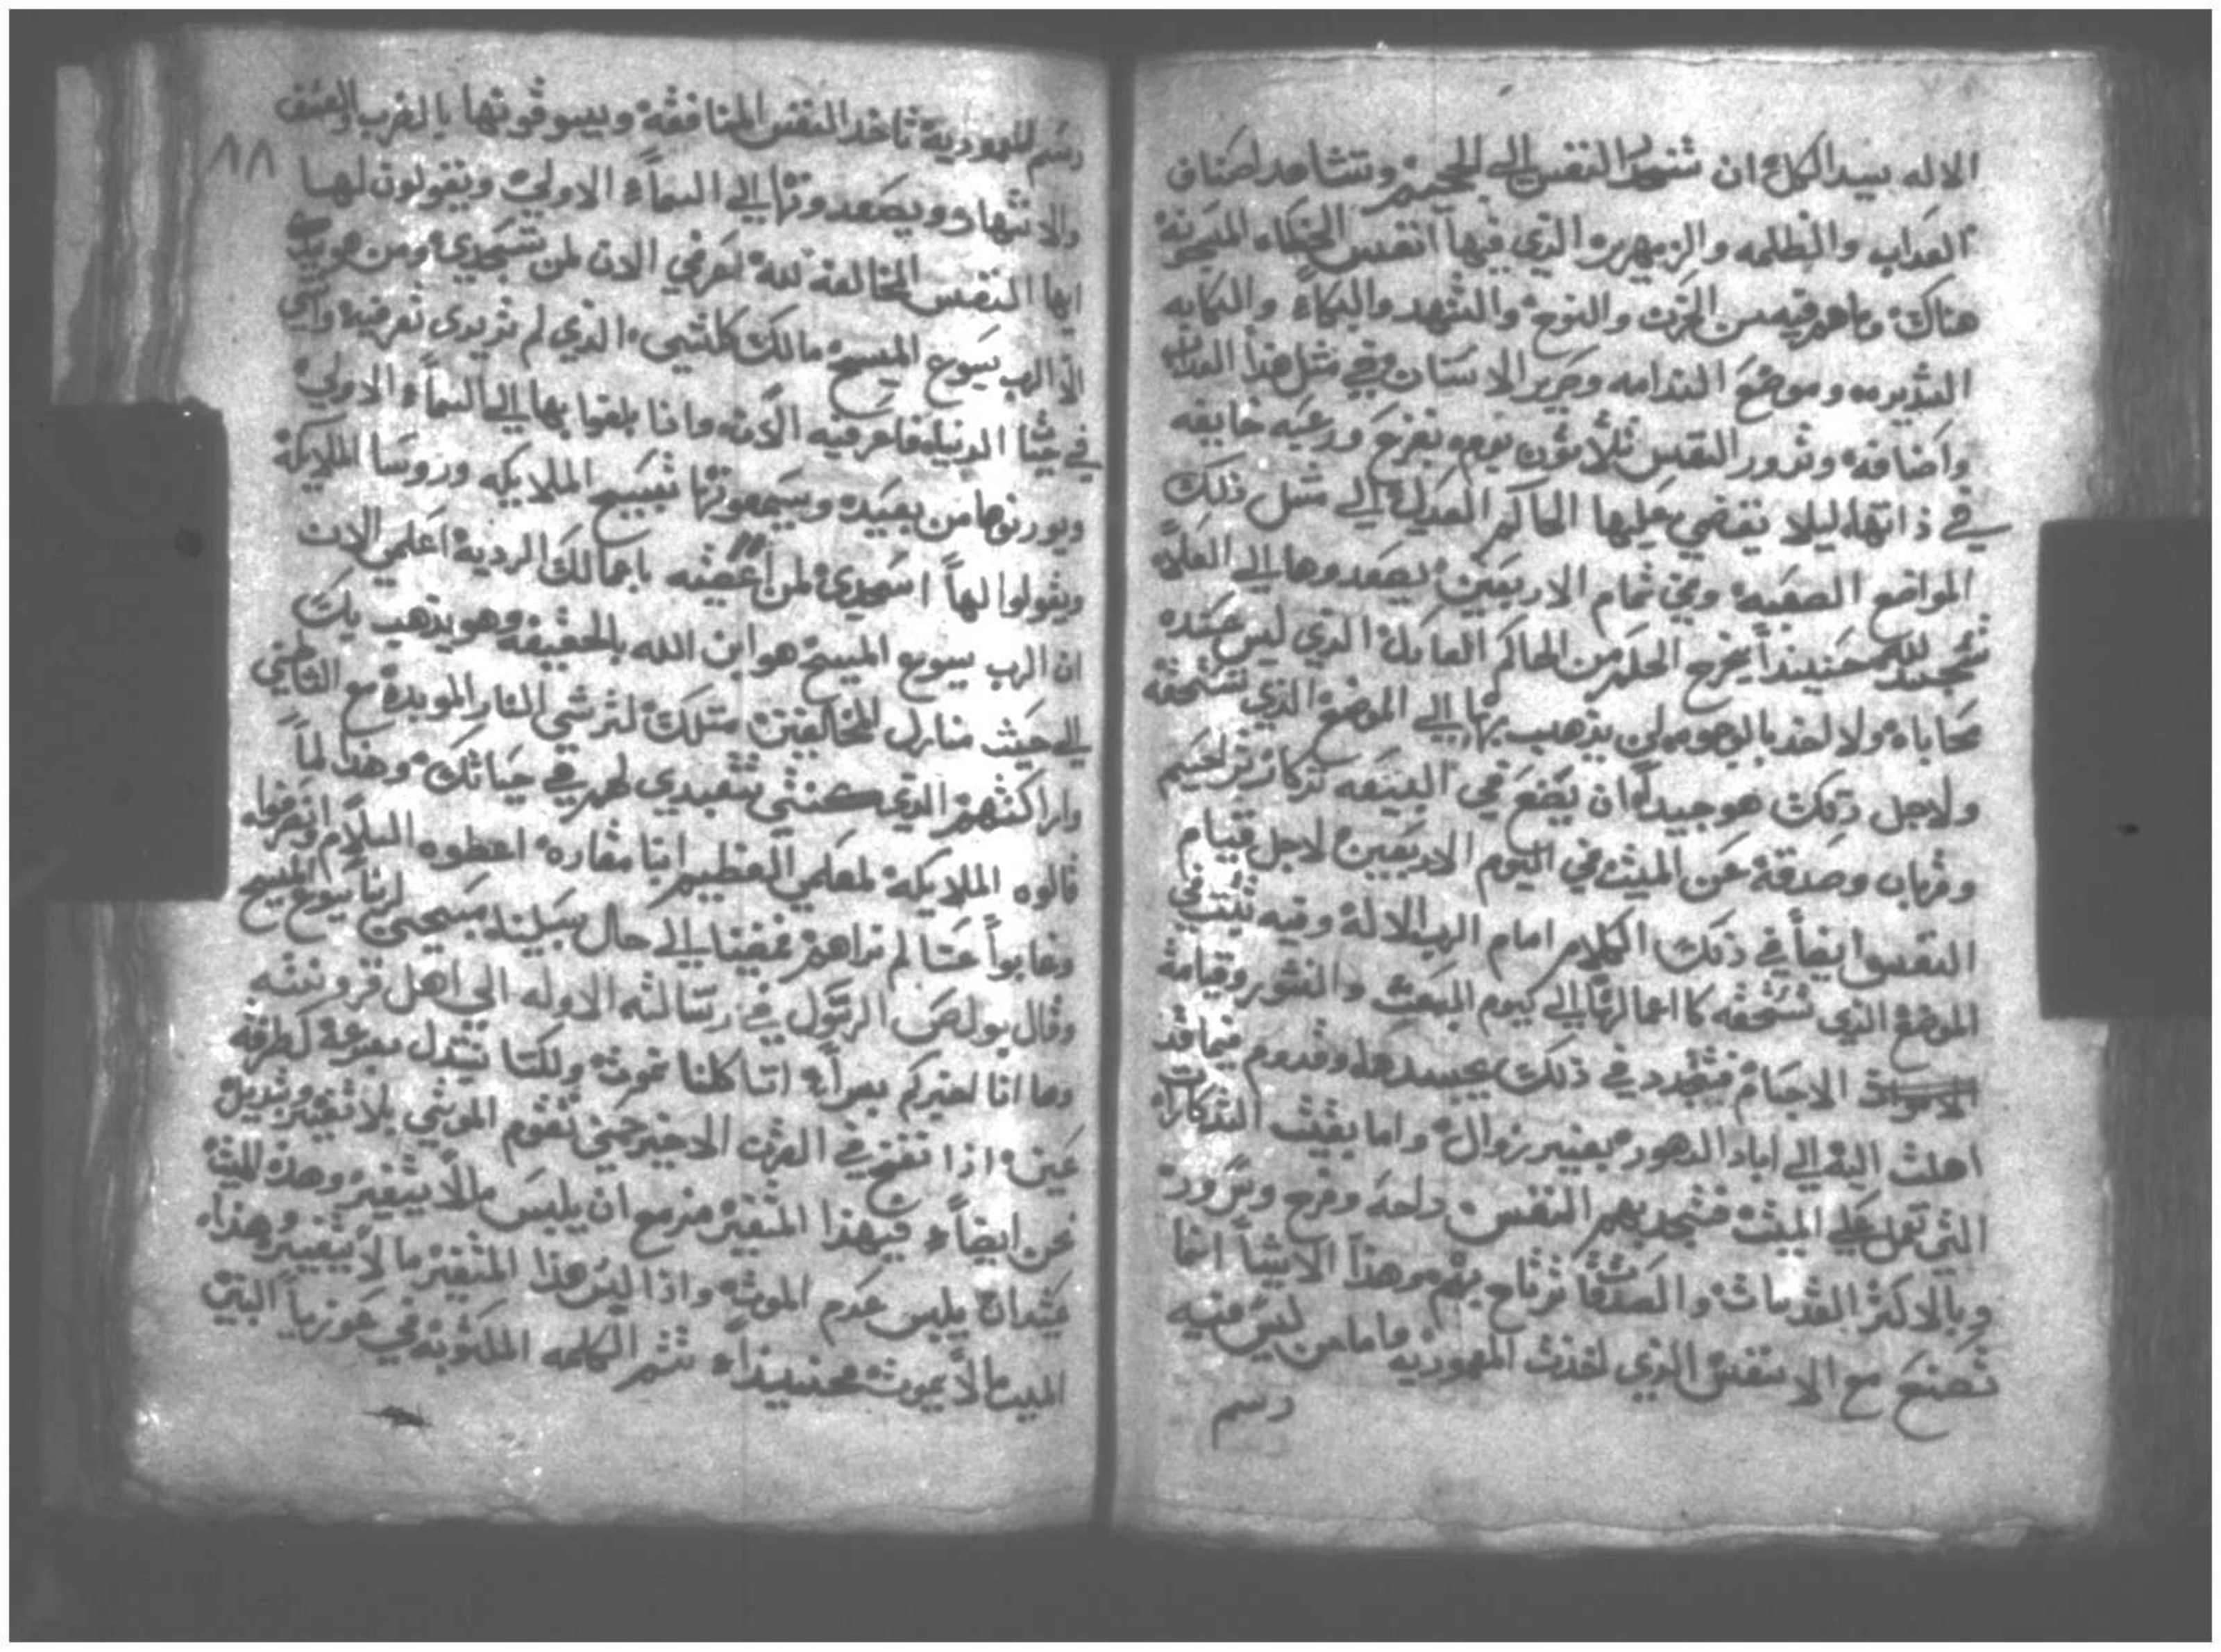 الاله سيد الكل ان تنحدر النفس الي الجحيم وتشاهد اصناف
العداب والظلمه والزمهرير الذي فيها انفس الخطاه المسجونه
هناك وما هم فيه من الحزن والنوح والتنهد والبكاء والكابه
المديره وموضع الندامه وصرير الاسنان وفي مثل هذا العداب
واضافه وتدور النفس ثلاثون يوم بفزع ورعبه خايفه
في ذاتها ليلا يقضي عليها الحاكم العديل الي مثل ذلك
المواضع الصعبه وفي تمام الاربعين يصعدوها الي العلا
تسجد لله حنيندا يخرج الحكم من الحاكم العادل الذي ليس عنده
محاباه ولا اخد بالوجوه لمن يذهب بها الي الموضع الذي تستحقه
ولاجل ذلك هو جيدا ان يصنع في البيعه تذكار ترحيم
وقربان وصدقة عن الميت في اليوم الاربعين لاجل قيام
النفس ايضا في ذلك الكلام امام الرب الاله وفيه تثبت في
الموضع الذي تستحقه كاعمالها الي كيوم المبعث والنشور وقيامة
الاجسام فيتجدد في ذلك بجسدها وقدوم فيما قد
اهلت اليه الي اباد الدهور بغير زوال واما بقيت التذكارات
التي تعمل علي الميت فتجد بهم النفس راحه وفرح وسرور
وبالاكتر القدسات والصدقات ترتاح بهم وهذا الاشيا انما
تصنع مع الانفس الذي اخذت المعموديه فاما من ليس فيه
رسم
٨٨
رسم المعموديه تاخد النفس المنافقه ويسوقونها بالضرب والعنف
والانتهار ويصعدونها الي السماء الاولي ويقولون لها
ايها النفس المخالفه لله اعرفي الان لمن تسجدي ومن هو ربك
الا الرب يسوع المسيح مالك كلشي الذي لم تريدي تعرفيه وانتي
في حيتا الدنيا فاعرفيه الان واذا بلغوا بها الي السماء الاولي
ويورنوها من بعيد ويسمعونها تسبيح الملايكه وروسا الملايكة
ويقولوا لها اسجدي لمن اغضبته باعمالك الرديه اعلمي الان
ان الرب يسوع المسيح هو ابن الله بالحقيقه وهو يذهب بك
الي حيث منازل المخالفين متلك لترثي النار الموبده مع الشياطين
واراكنتهم الذي كنتي تتعبدي لهم في حياتك وهذا لما
قالوه الملايكه لمعلمي العظيم انبا مقاره اعطوه السلام وانصرفوا
وغابوا عنا لم نراهم فمضينا الي حال سبيلنا بمسيحي لربنا يسوع المسيح
وقال بولص الرسول في رسالته الاوله الي اهل قرونتيه
وها انا اخبركم بسرا اننا كلنا نموت ولكنا نتبدل بسرعة كطرفة
عين اذا نفخ في القرن الاخير حتي تقوم الموتي بلا تغيير وتبديل
نحن ايضا فهذا المتغير مزمع ان يلبس مالا يتغير وهذه الميت
عتيدان يلبس عدم الموت واذا لبس هذا المتغير مالا يتغير وهذا
الميت مالا يموت فحنيندا تتم الكلمه المكتوبه في هوزيا النبي